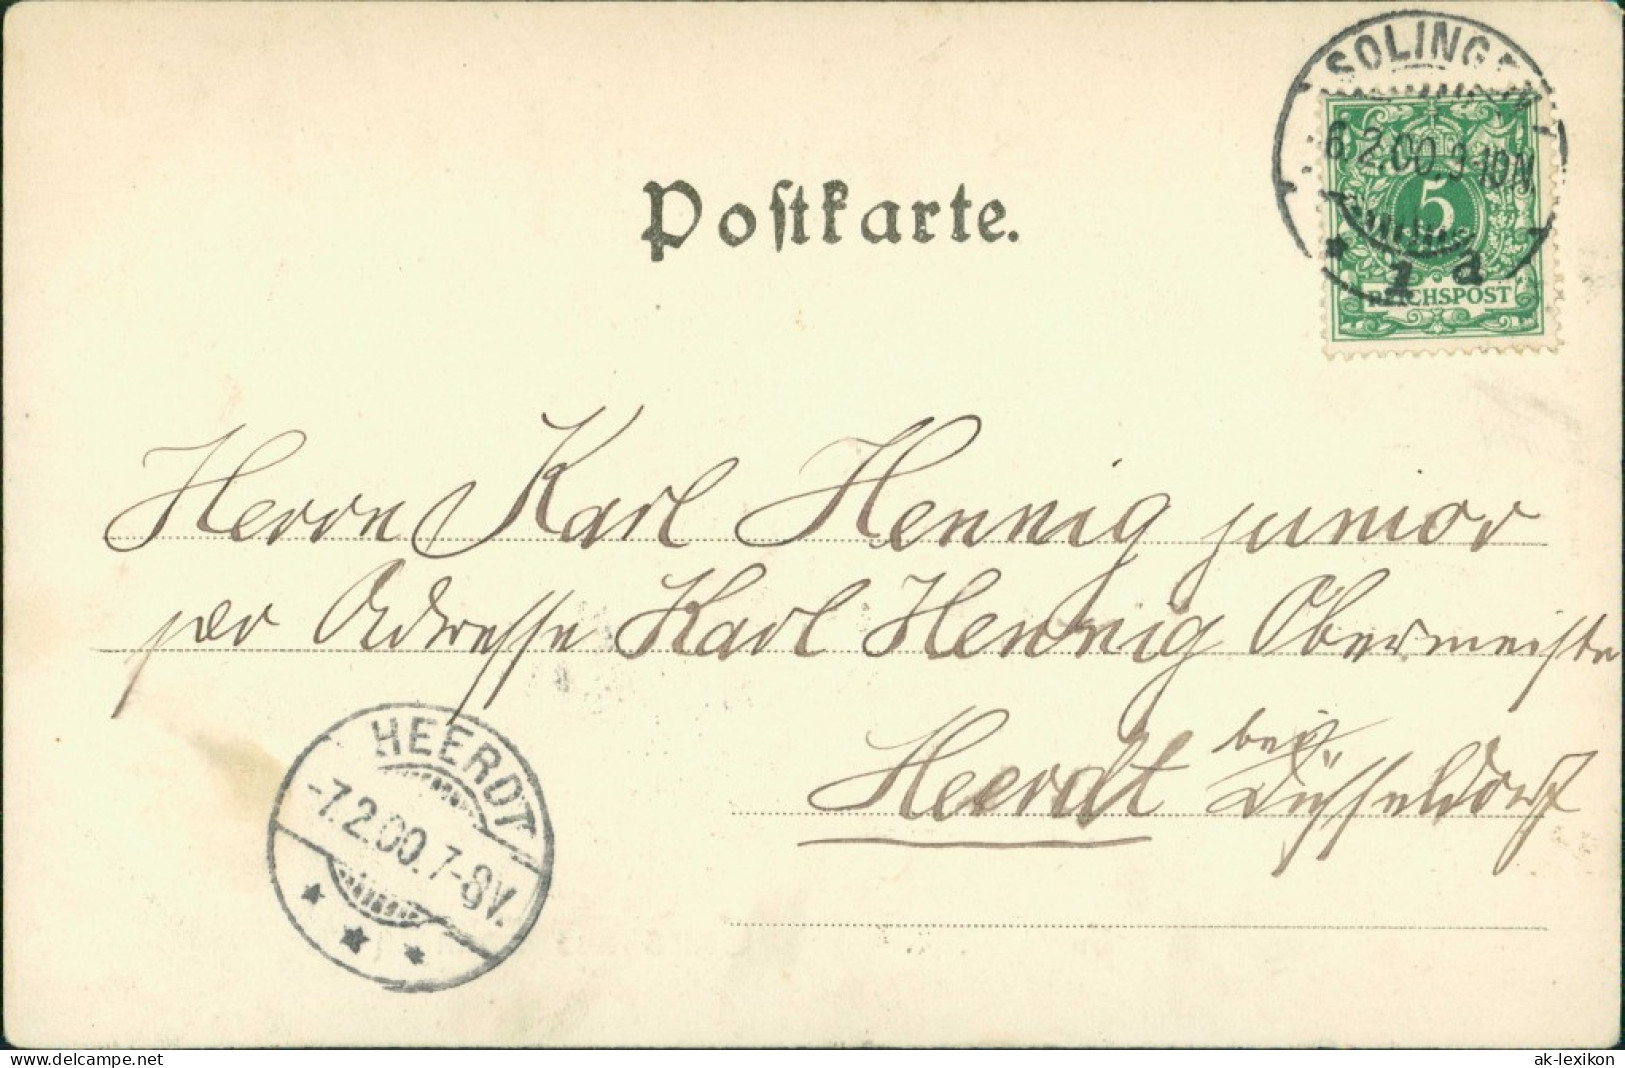 SOLINGEN
6.2.00.9-10N.
* 1 a
5
REICHSPOST
Poſtkarte.
Herrn Karl Hennig junior
per Adresse Karl Hennig Obermeister
Heerdt bei Düsseldorf
HEERDT
-7.2.00.7-8V.
ansichtskarten-lexikon.de
ak-lexikon